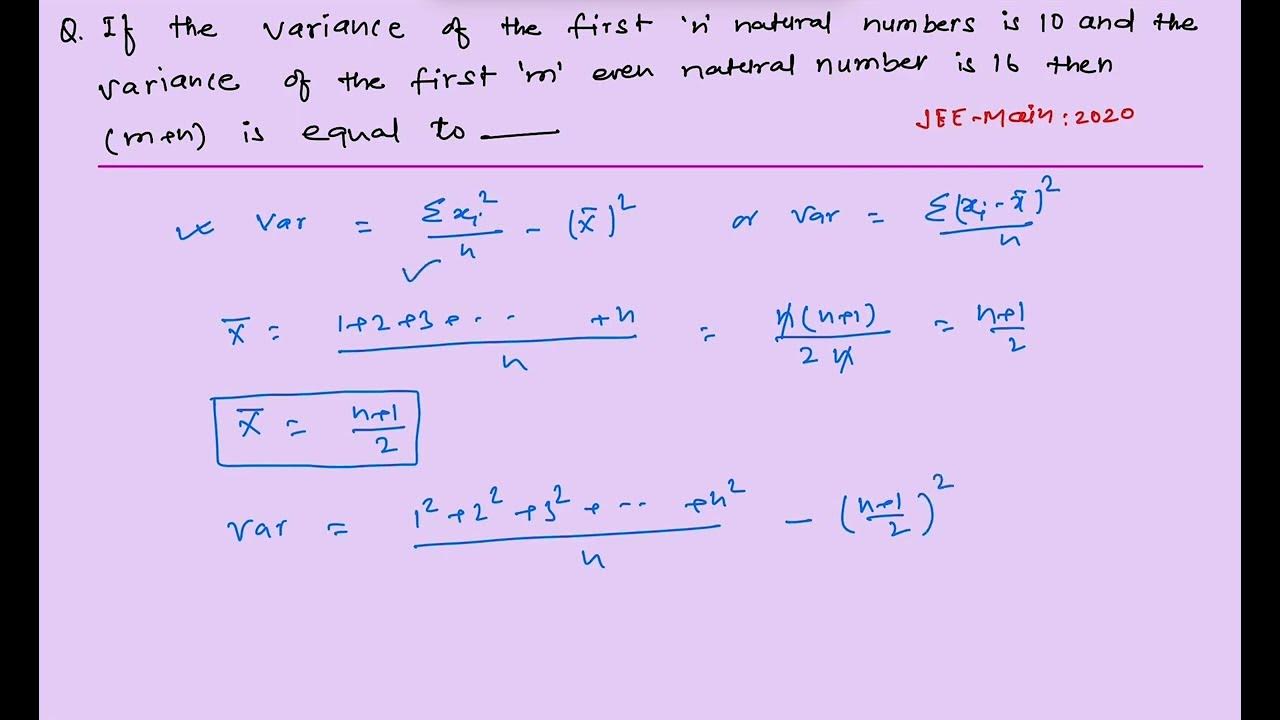 Q. If the variance of the first 'n' natural numbers is 10 and the
variance of the first 'm' even natural number is 16 then
(m+n) is equal to ____
JEE-Main: 2020
Var = Σxᵢ²/n - (x̄)² or Var = Σ(xᵢ - x̄)²/n
x̄ = 1+2+3+... +n/n = n(n+1)/2n = n+1/2
x̄ = n+1/2
Var = 1²+2²+3²+... +n²/n - (n+1/2)²